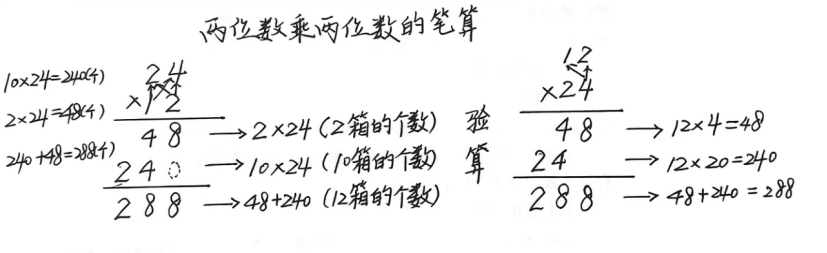 两位数乘两位数的笔算
10×24=240(个)
2×24=48(个)
240+48=288(个)
24
×12
48 → 2×24 (2箱的个数)
240 → 10×24 (10箱的个数)
288 → 48+240 (12箱的个数)
验算
12
×24
48 → 12×4=48
24 → 12×20=240
288 → 48+240=288